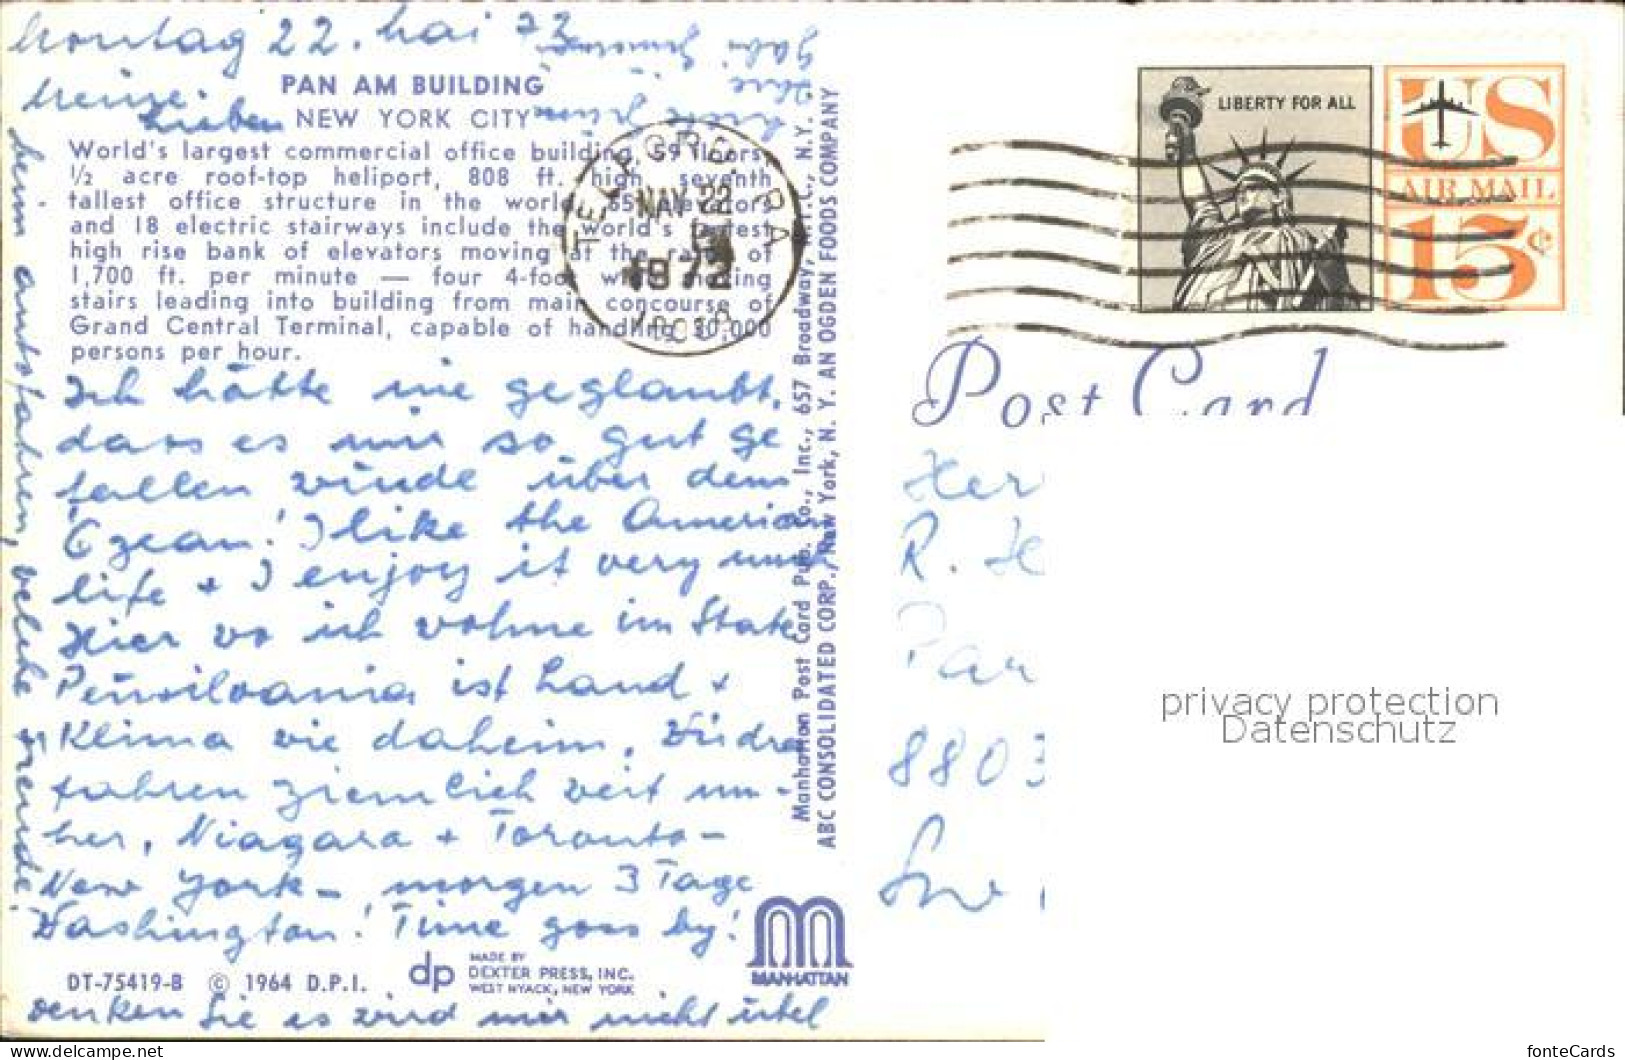 Montag 22. Mai 73
Meine
Lieben
PAN AM BUILDING
NEW YORK CITY
World's largest commercial office building, 59 floors,
½ acre roof-top heliport, 808 ft. high, seventh
tallest office structure in the world, 65 elevators
and 18 electric stairways include the world's fastest
high rise bank of elevators moving at the rate of
1,700 ft. per minute — four 4-foot wide moving
stairs leading into building from main concourse of
Grand Central Terminal, capable of handling 30,000
persons per hour.
Ich hätte nie geglaubt,
dass es mir so gut ge
fallen würde über dem
Ozean! I like the American
life + I enjoy it very much
Hier wo ich wohne im State
Pensilvania ist Land +
Klima wie daheim. Wir
fahren ziemlich weit um-
her, Niagara + Toronto –
New York – morgen 3 Tage
Washington! Time goes by!
DT-75419-B © 1964 D.P.I.
dp
MADE BY
DEXTER PRESS, INC.
WEST NYACK, NEW YORK
MANHATTAN
denken Sie es wird mir nicht übel
beim autofahren, welche Freude.
Manhattan Post Card Pub. Co., Inc., 657 Broadway, N.Y.C., N.Y.
ABC CONSOLIDATED CORP., New York, N. Y. AN OGDEN FOODS COMPANY
MAY 22
LIBERTY FOR ALL
US
AIR MAIL
15¢
Post Card
Her
R. H
Par
8803
privacy protection
Datenschutz
https://www.ansichtskarten-center.de
fonteCards